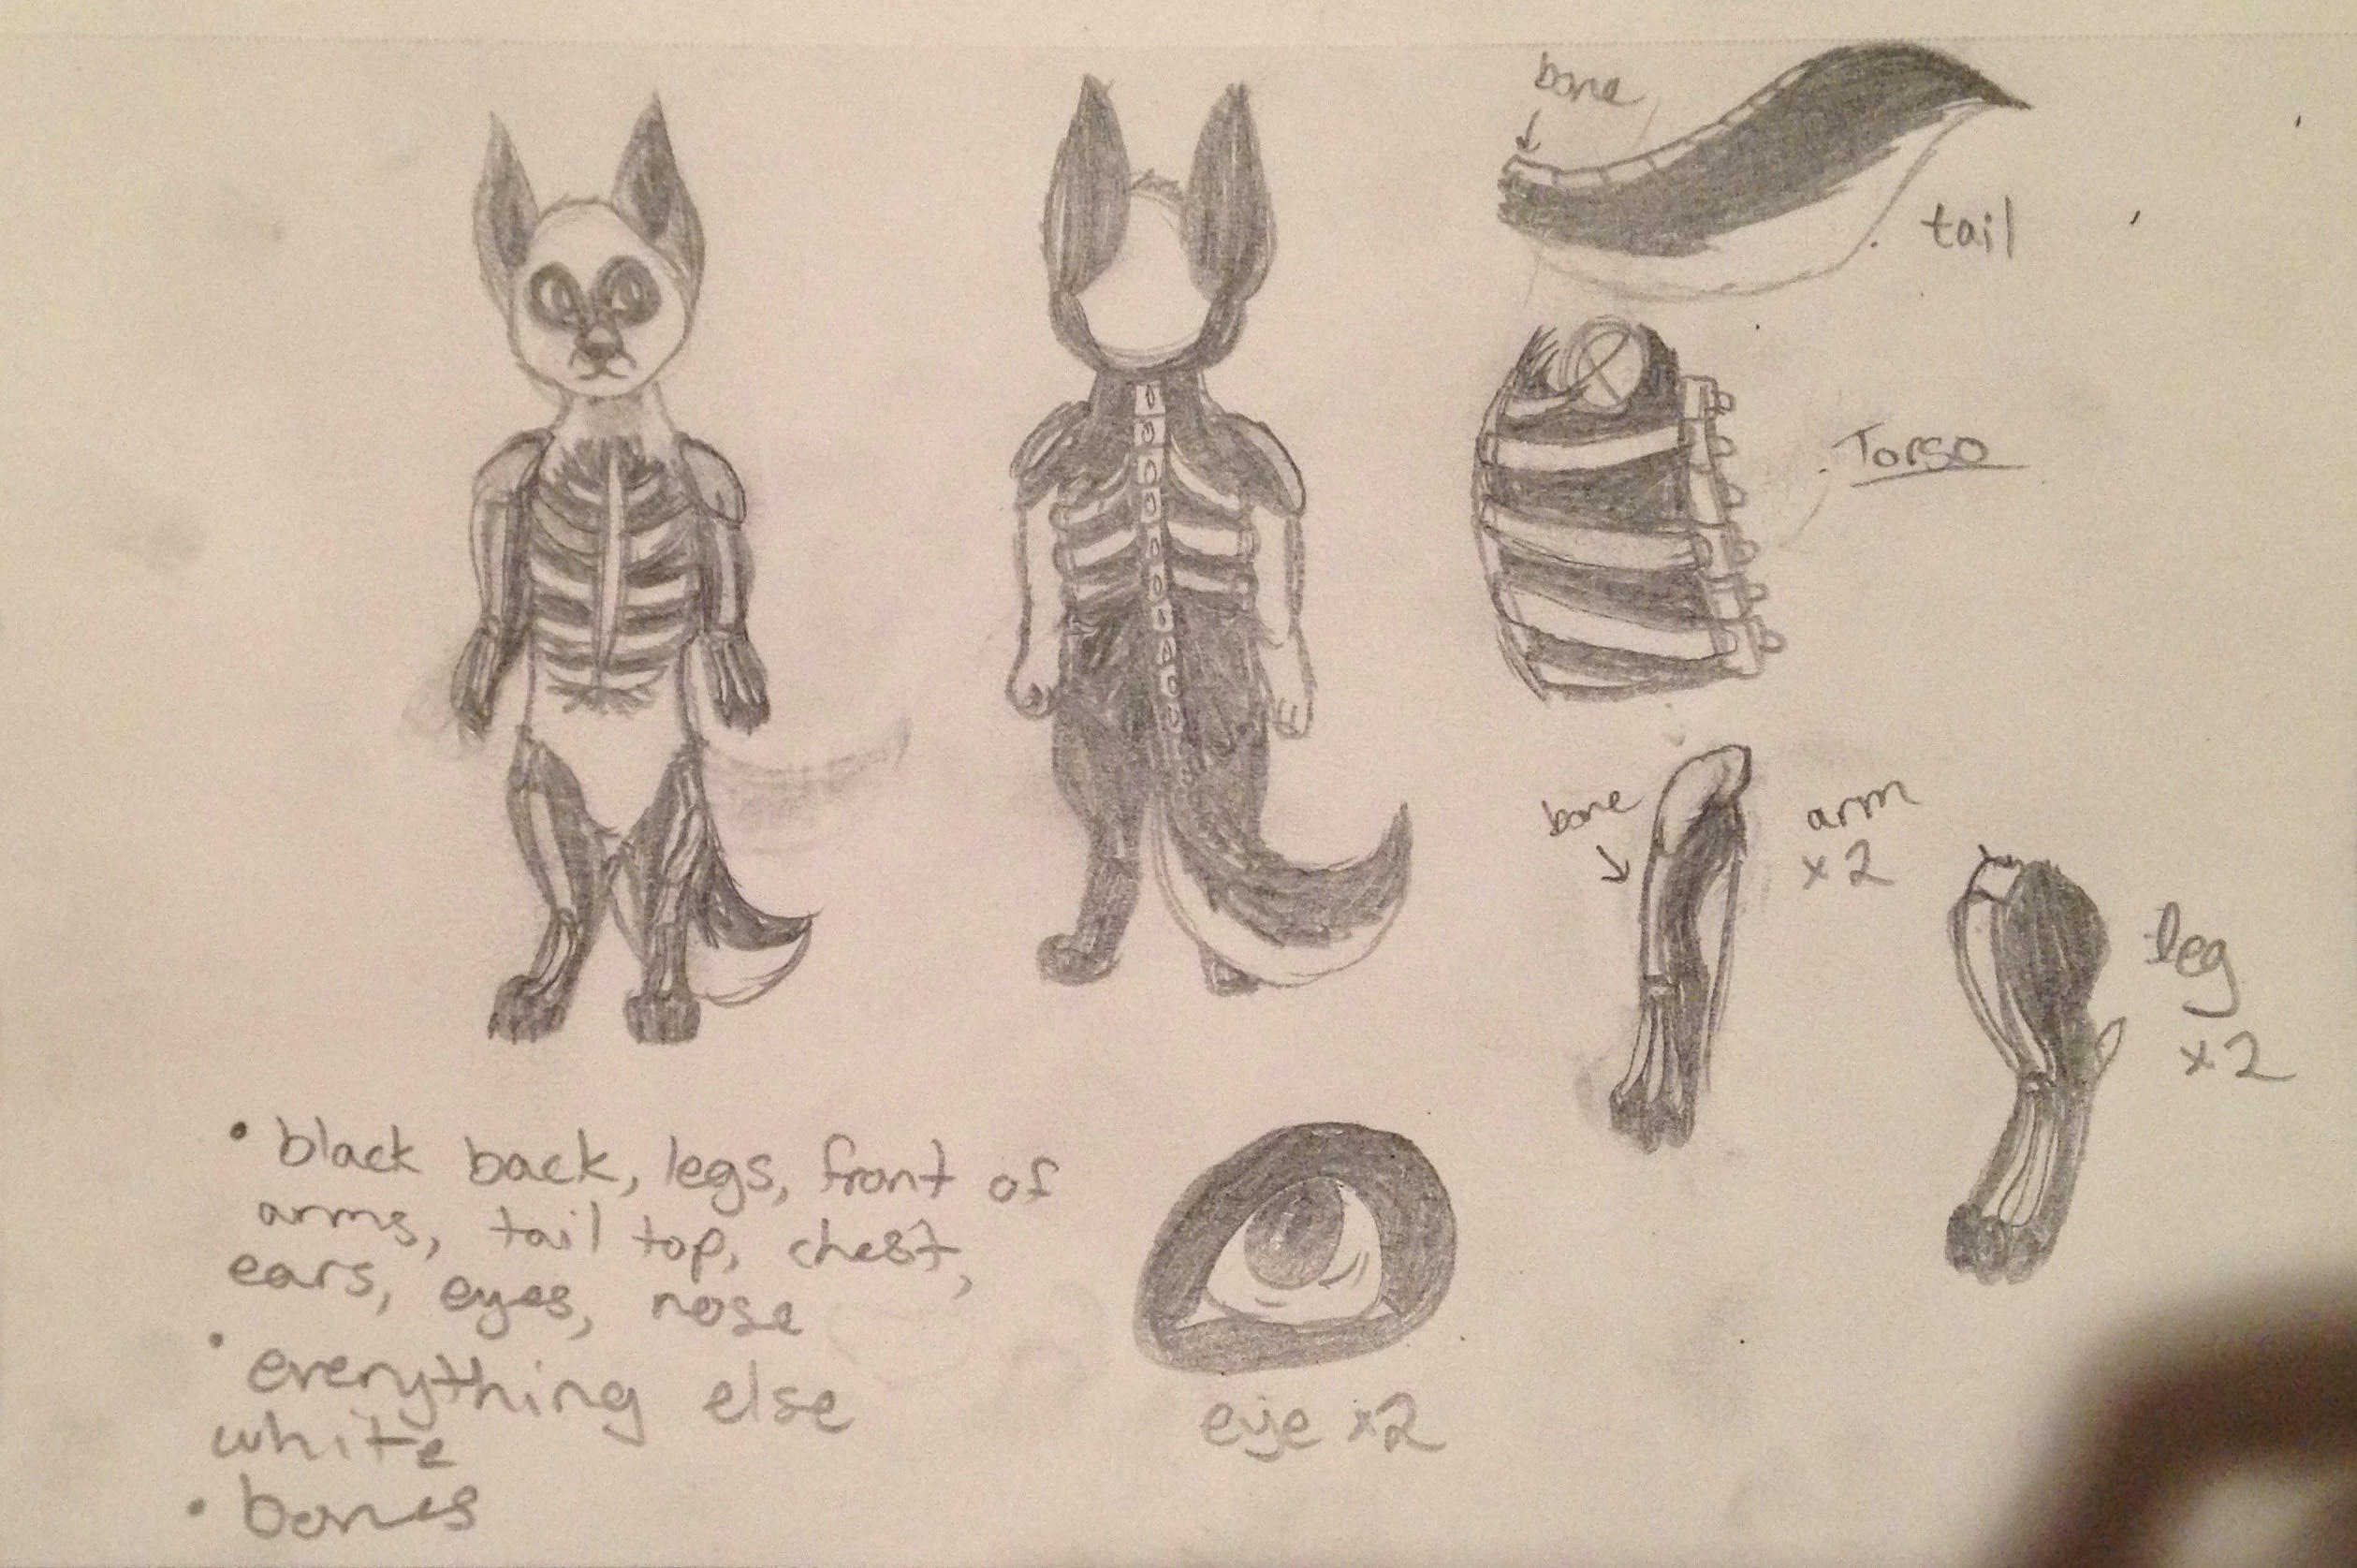 bone
tail
Torso
bone
arm
x2
leg
x2
• black back, legs, front of
arms, tail top, chest,
ears, eyes, nose
• everything else
white
• bones
eye x2